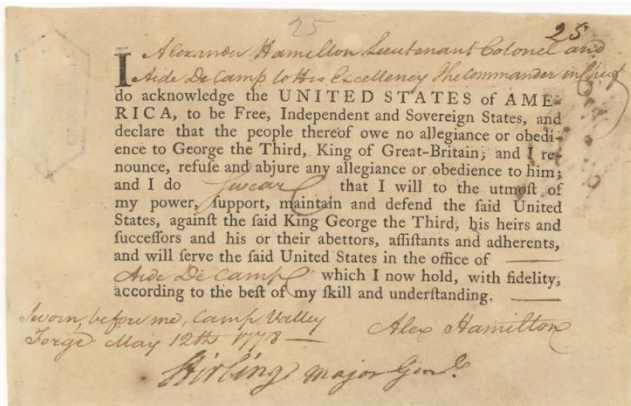 25
25
I Alexander Hamilton Lieutenant Colonel and
Aide De Camp to His Excellency The Commander in Chief
do acknowledge the UNITED STATES of AME-
RICA, to be Free, Independent and Sovereign States, and
declare that the people thereof owe no allegiance or obedi-
ence to George the Third, King of Great-Britain; and I re-
nounce, refuse and abjure any allegiance or obedience to him;
and I do Swear that I will to the utmost of
my power, support, maintain and defend the said United
States, against the said King George the Third, his heirs and
successors and his or their abettors, assistants and adherents,
and will serve the said United States in the office of
Aide De Camp which I now hold, with fidelity,
according to the best of my skill and understanding.
Sworn, before me, Camp Valley
Forge May 12th 1778
Alex Hamilton
Stirling Major Genl.